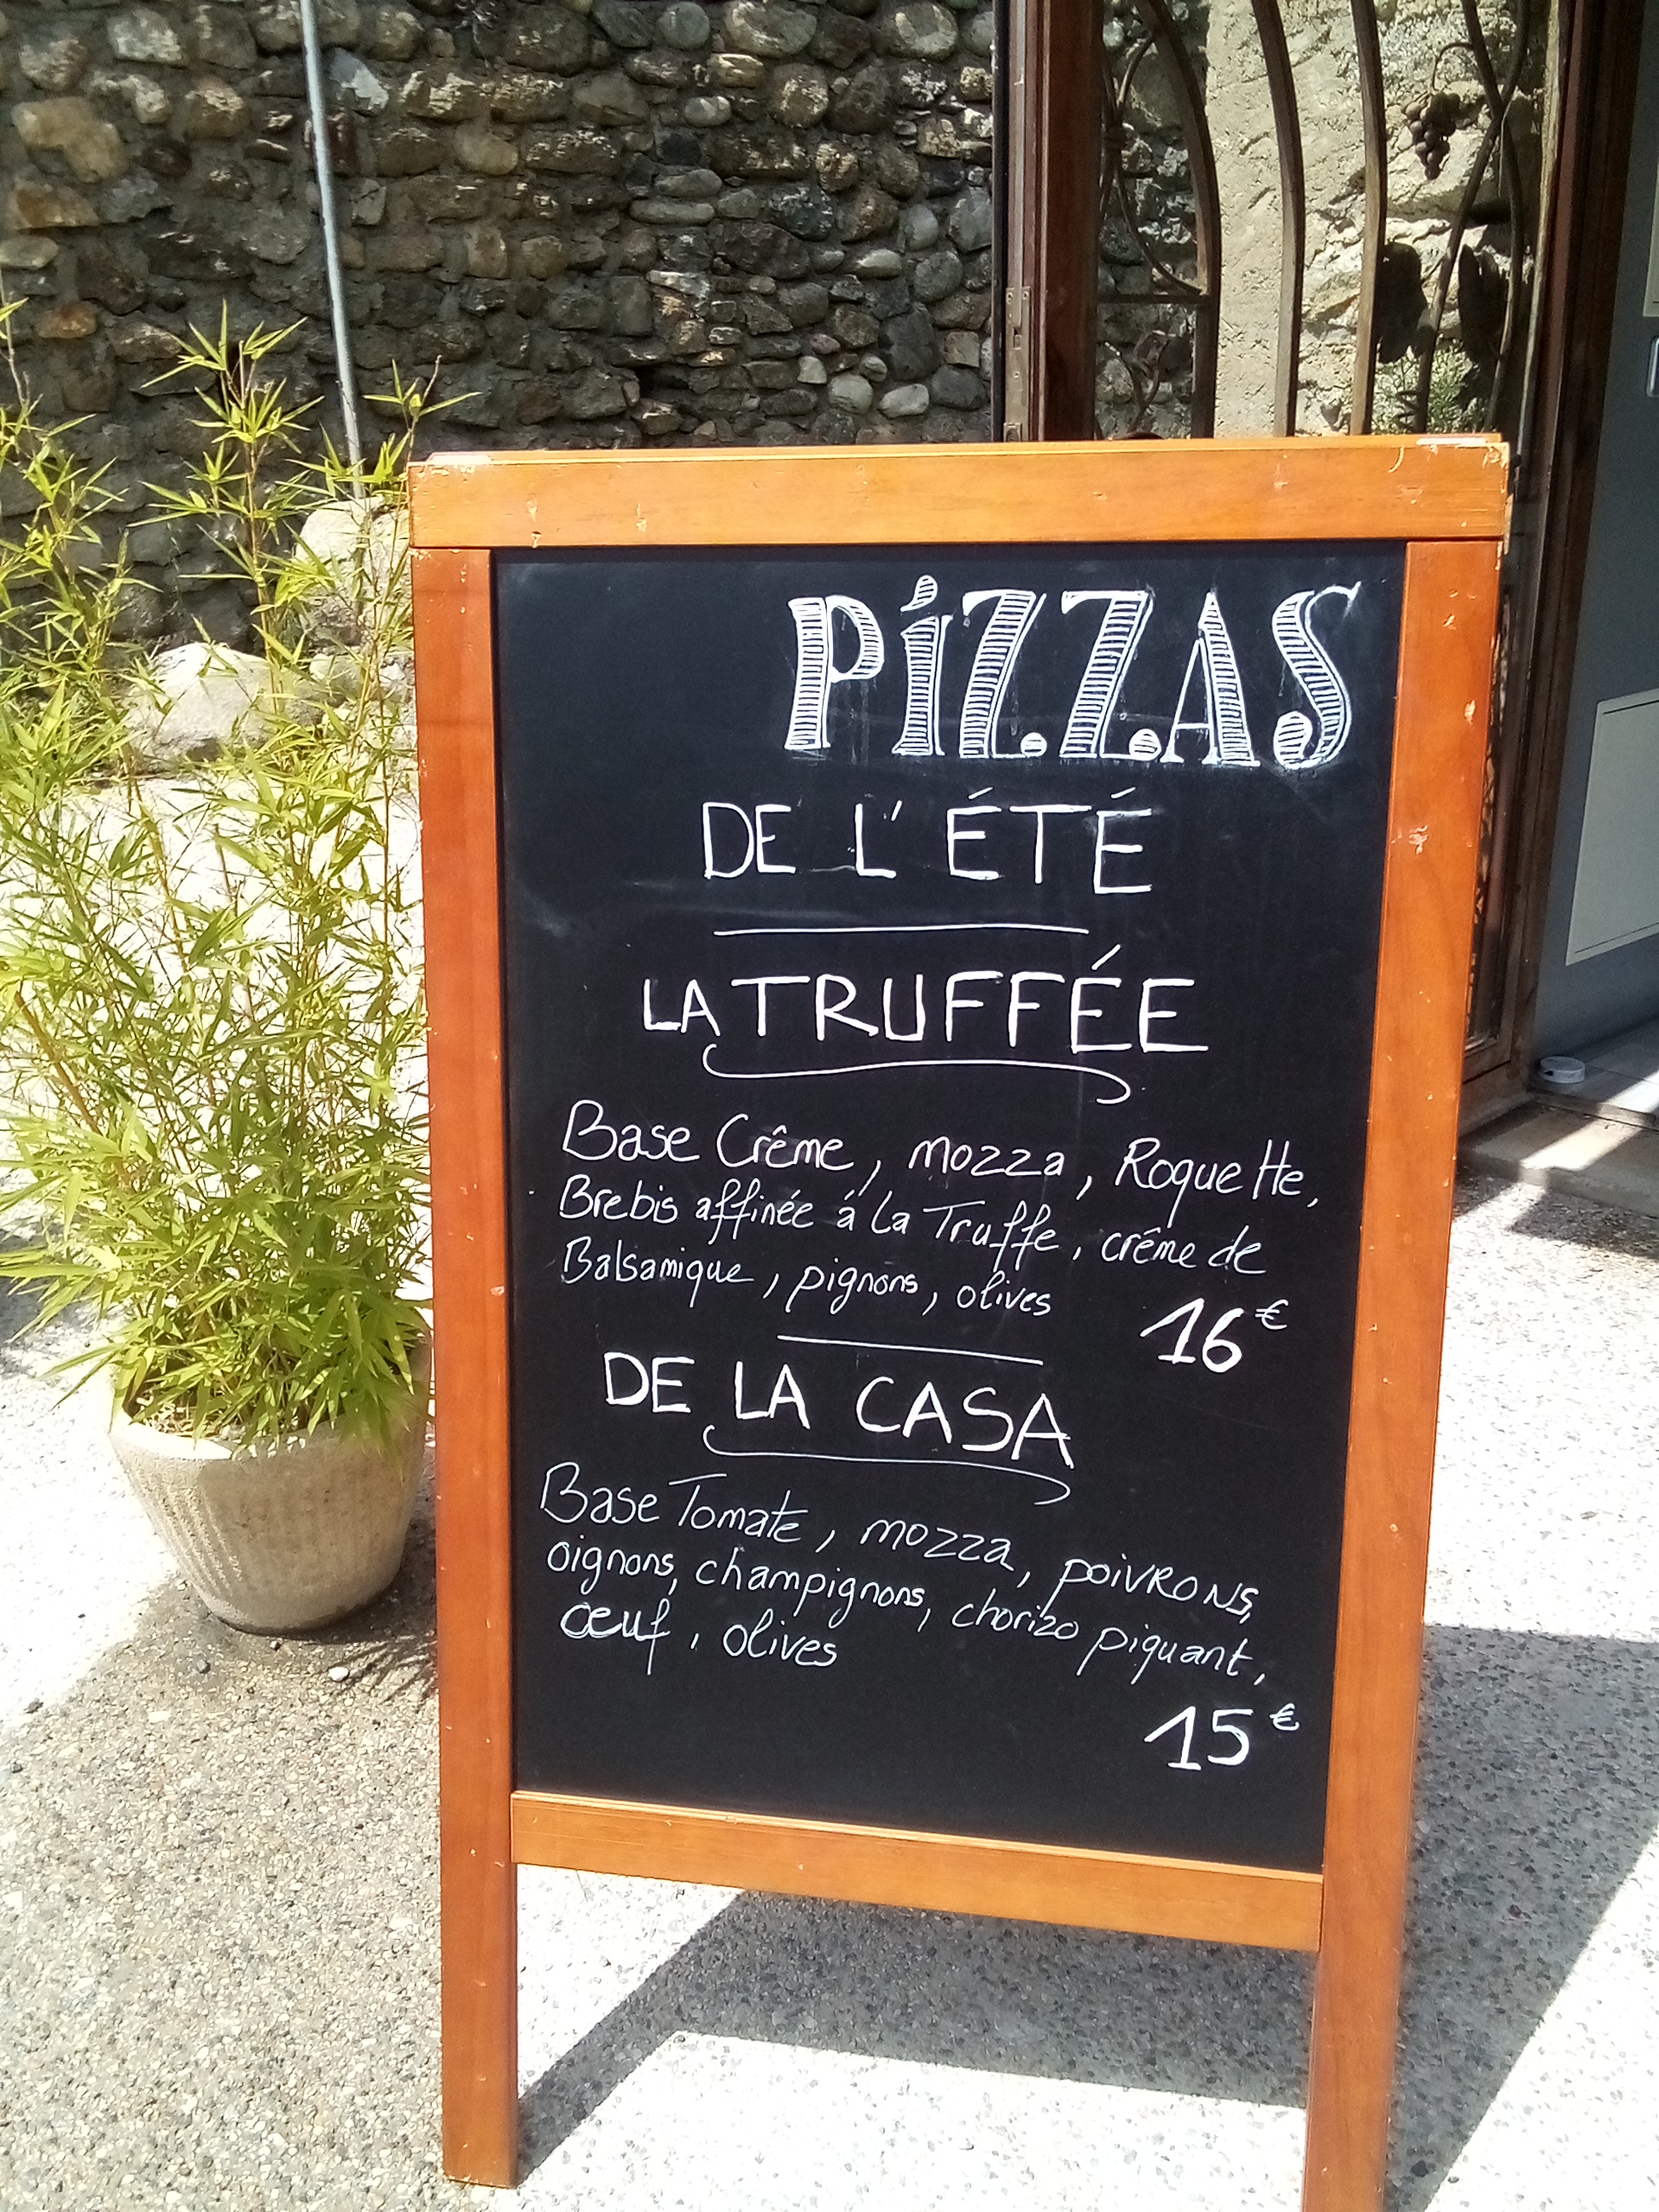 PiZZAS
DE L'ÉTÉ
LA TRUFFÉE
Base Crême, mozza, Roquette,
Brebis affinée á la Truffe, crême de
Balsamique, pignons, olives
16€
DE LA CASA
Base Tomate, mozza, poivrons,
oignons, champignons, chorizo piquant,
œuf, olives
15€